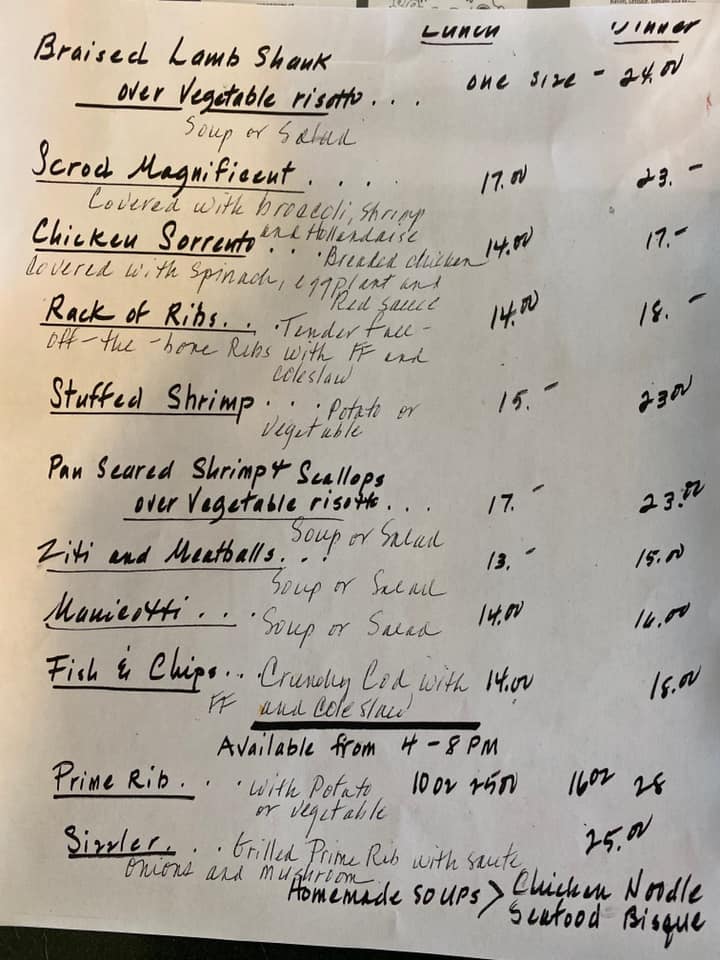 Lunch Dinner
Braised Lamb Shank
over Vegetable risotto . . . one size - 24.00
Soup or Salad
Scrod Magnificent . . . . 17.00 23.-
Covered with broccoli, Shrimp
and Hollandaise
Chicken Sorrento . . . Breaded chicken 14.00 17.-
Covered with Spinach, eggplant and
Red sauce
Rack of Ribs. . . Tender fall- 14.00 18.-
off-the-bone Ribs with FF and
coleslaw
Stuffed Shrimp . . . Potato or 15.- 23.00
Vegetable
Pan Seared Shrimp & Scallops
over Vegetable risotto . . . 17.- 23.00
Soup or Salad
Ziti and Meatballs. . . 13.- 15.00
Soup or Salad
Manicotti . . . Soup or Salad 14.00 16.00
Fish & Chips . . . Crunchy Cod with 14.00 18.00
FF and Cole slaw
Available from 4-8 PM
Prime Rib . . . with Potato 10 oz 25.00 16 oz 28
or vegetable
Sizzler. . . Grilled Prime Rib with saute 25.00
Onions and Mushroom
Homemade soups > Chicken Noodle
Seafood Bisque